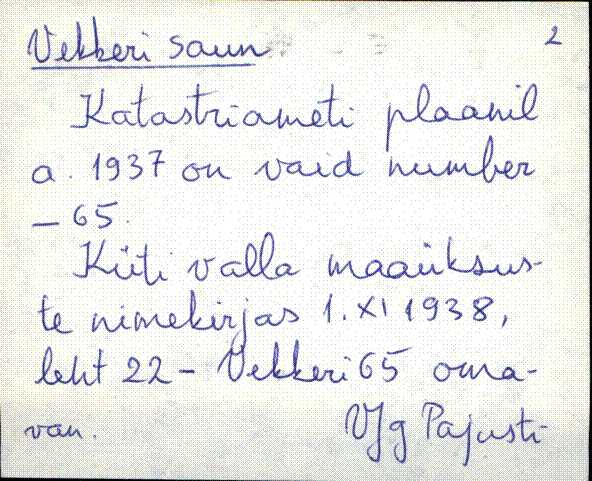 Vekkeri saun 2
Katastriameti plaanil
a. 1937 on vaid number
– 65.
Küti valla maaüksus-
te nimekirjas 1. XI 1938,
leht 22 – Vekkeri 65 oma-
van. VJg Pajusti